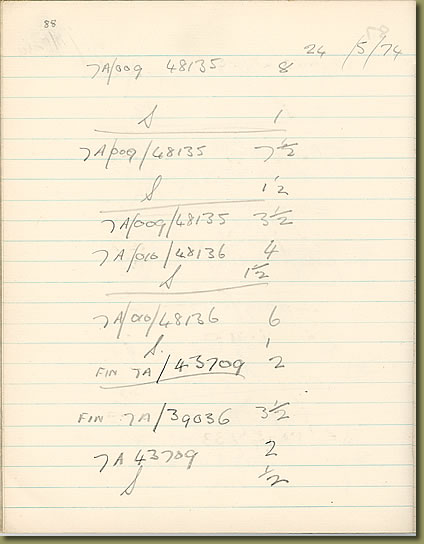 88
24 /5/74
7A/009 48135 8
S 1
7A/009/48135 7½
S 1½
7A/009/48135 3½
7A/010/48136 4
S 1½
7A/010/48136 6
S. 1
FIN 7A/43709 2
FIN 7A/39036 3½
7A 43709 2
S ½